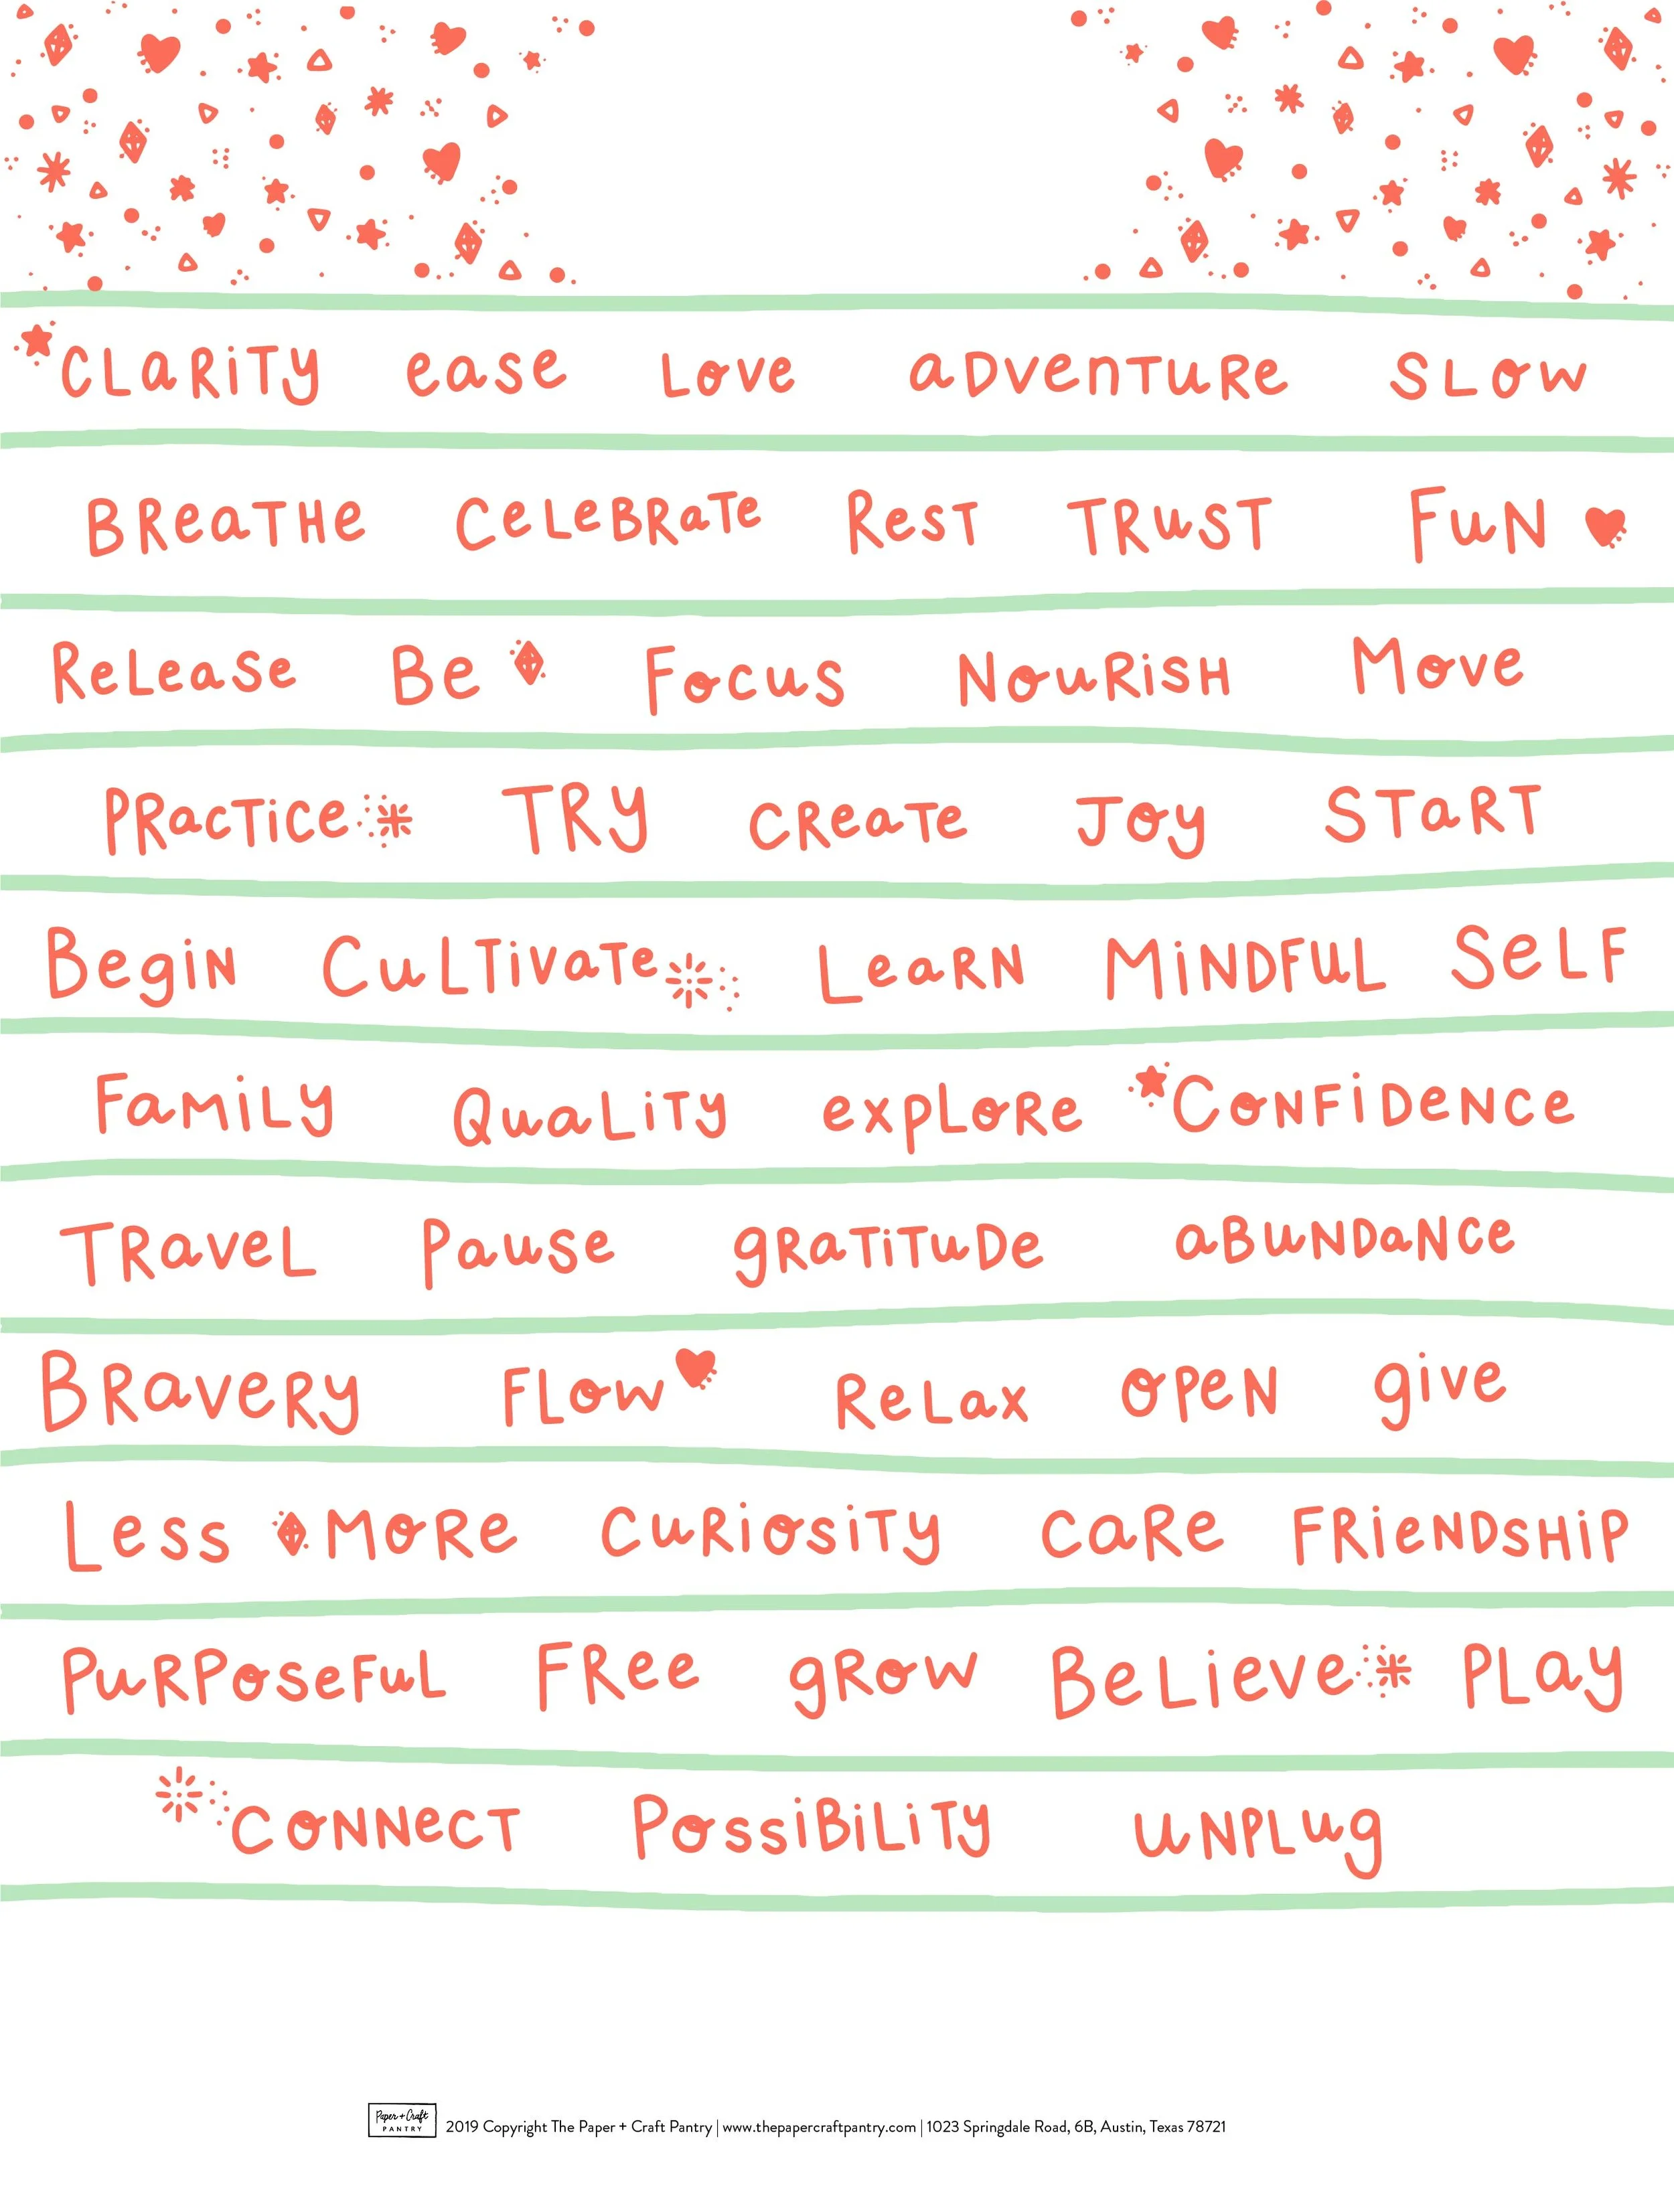 CLaRiTy ease Love aDVenTuRe SLow
BReaTHe CeLeBRaTe ResT TRuST FuN
ReLease Be Focus NouRiSH Move
PRacTice TRy cReaTe Joy STaRT
BegiN CuLTivaTe LeaRN MiNDFuL SeLF
FaMiLy QuaLiTy expLoRe CoNFiDeNce
TRaveL Pause gRaTiTuDe aBuNDaNce
BRaveRy FLow ReLax oPeN give
Less MoRe cuRiosiTy caRe FRieNDSHiP
PuRPoseFuL FRee gRow BeLieve PLay
CoNNecT PossiBiLiTy uNPLug
Paper + Craft
PANTRY
2019 Copyright The Paper + Craft Pantry | www.thepapercraftpantry.com | 1023 Springdale Road, 6B, Austin, Texas 78721